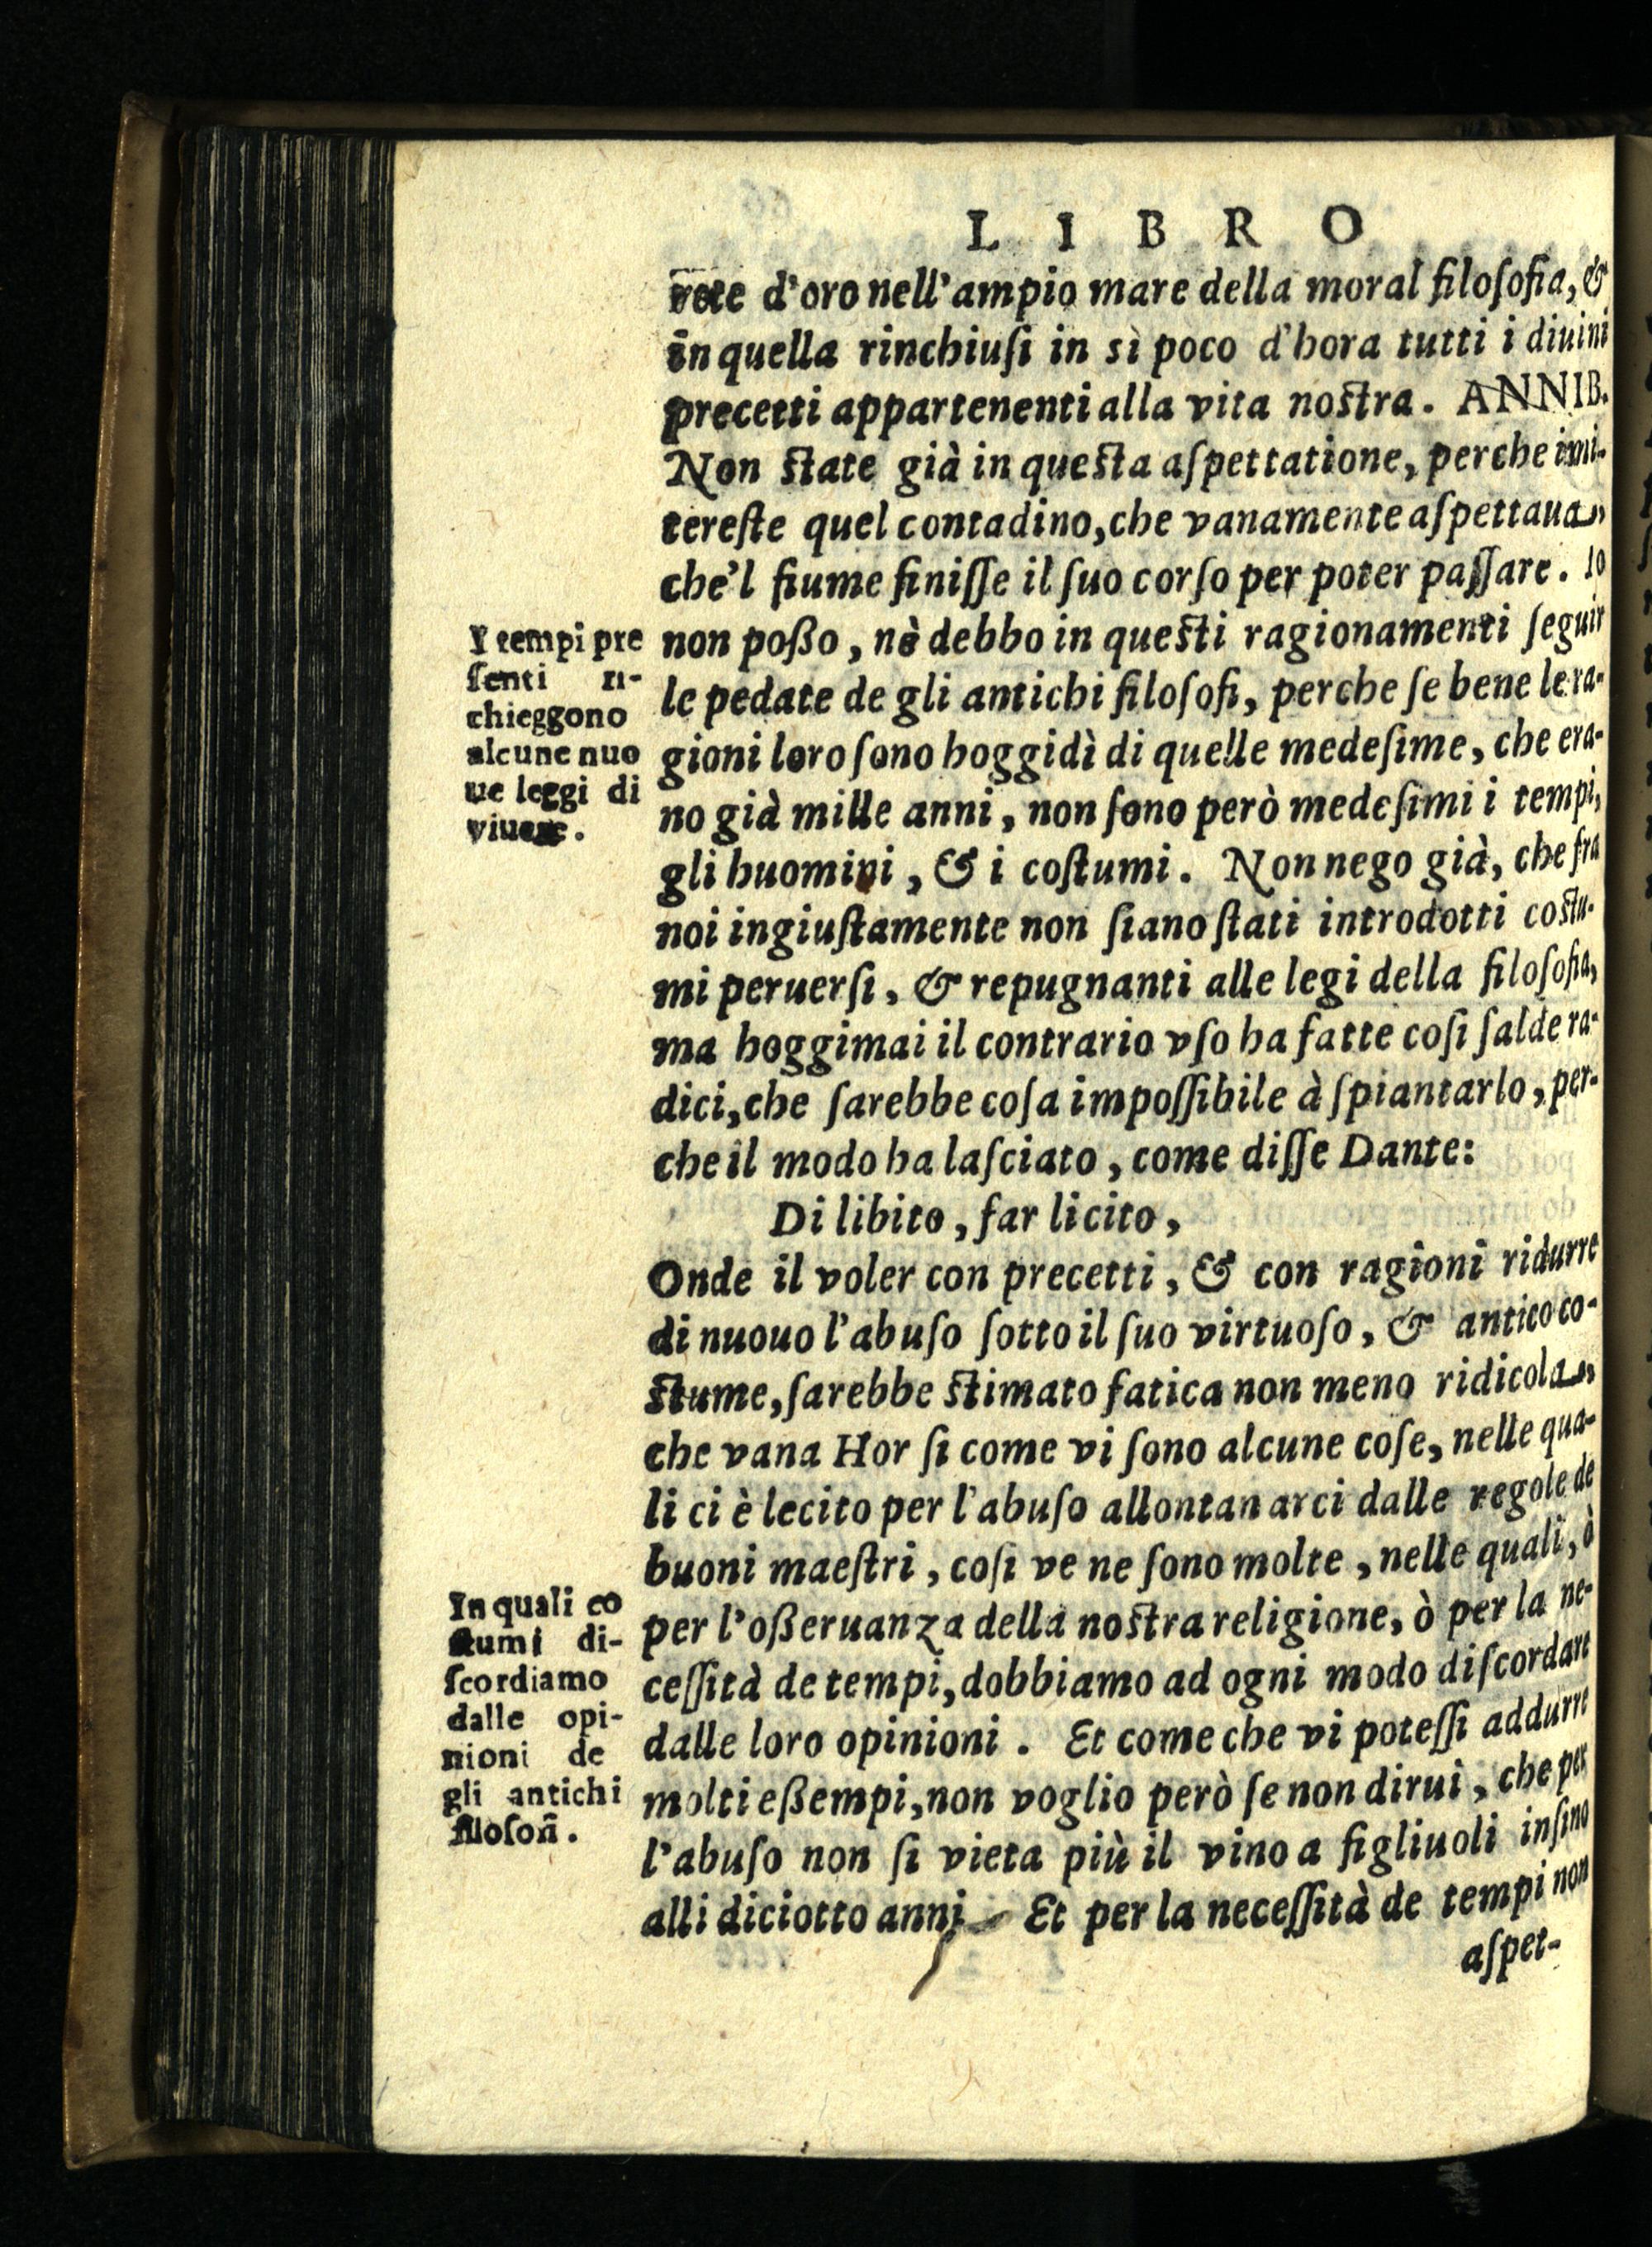 LIBRO
rete d'oro nell'ampio mare della moral filoſofia, &
in quella rinchiuſi in sì poco d'hora tutti i diuini
precetti appartenenti alla vita noſtra. ANNIB.
Non ſtate già in queſta aſpettatione, perche imi-
tereſte quel contadino, che vanamente aſpettaua,
che'l fiume finiſſe il ſuo corſo per poter paſſare. Io
I tempi pre
ſenti ri-
chieggono
alcune nuo
ue leggi di
viuere.
non poßo, nè debbo in queſti ragionamenti ſeguir
le pedate de gli antichi filoſofi, perche ſe bene le ra-
gioni loro ſono hoggidì di quelle medeſime, che era-
no già mille anni, non ſono però medeſimi i tempi,
gli huomini, & i coſtumi. Non nego già, che fra
noi ingiuſtamente non ſiano ſtati introdotti coſtu-
mi peruerſi, & repugnanti alle legi della filoſofia,
ma hoggimai il contrario vſo ha fatte coſi ſalde ra-
dici, che ſarebbe coſa impoſſibile à ſpiantarlo, per-
che il modo ha laſciato, come diſſe Dante:
Di libito, far licito,
Onde il voler con precetti, & con ragioni ridurre
di nuouo l'abuſo ſotto il ſuo virtuoſo, & antico co-
ſtume, ſarebbe ſtimato fatica non meno ridicola,
che vana Hor ſi come vi ſono alcune coſe, nelle qua-
li ci è lecito per l'abuſo allontanarci dalle regole de
buoni maeſtri, coſi ve ne ſono molte, nelle quali, ò
In quali co
ſtumi di-
ſcordiamo
dalle opi-
nioni de
gli antichi
filoſofi.
per l'oßeruanza della noſtra religione, ò per la ne-
ceſſità de tempi, dobbiamo ad ogni modo diſcordare
dalle loro opinioni. Et come che vi poteſſi addurre
molti eßempi, non voglio però ſe non dirui, che per
l'abuſo non ſi vieta più il vino a figliuoli inſino
alli diciotto anni Et per la neceſſità de tempi non
aſpet-